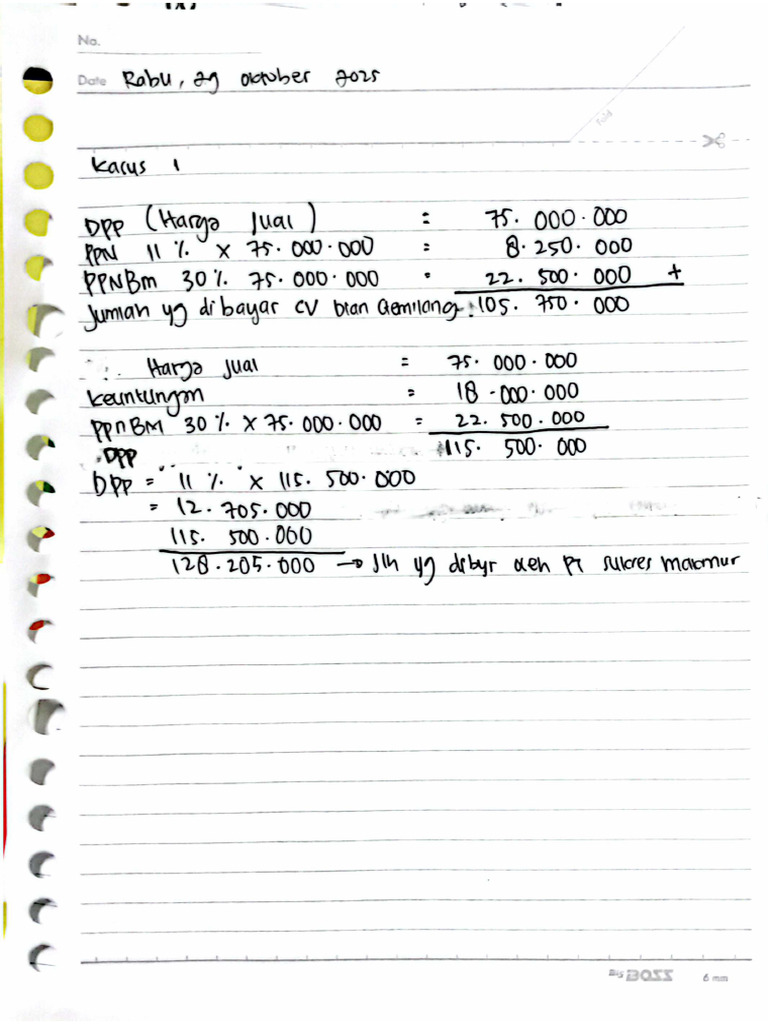 No.
Date Rabu, 29 oktober 2025
fold
Kasus 1
DPP (Harga Jual) = 75.000.000
PPN 11% x 75.000.000 = 8.250.000
PPNBM 30% 75.000.000 = 22.500.000 +
Jumlah yg dibayar CV bian Gemilang : 105.750.000
Harga Jual = 75.000.000
keuntungan = 18.000.000
PPnBM 30% x 75.000.000 = 22.500.000
DPP 115.500.000
DPP = 11% x 115.500.000
= 12.705.000
115.500.000
128.205.000 → Jlh yg dibyr oleh PT sukses makmur
Big BOSS 6 mm